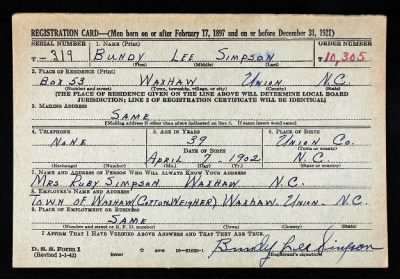 REGISTRATION CARD—(Men born on or after February 17, 1897 and on or before December 31, 1921)
SERIAL NUMBER 1. NAME (Print) ORDER NUMBER
T- 319 BUNDY LEE SIMPSON 10,305
(First) (Middle) (Last)
2. PLACE OF RESIDENCE (Print)
BOX 53 WAXHAW UNION N.C.
(Number and street) (Town, township, village, or city) (County) (State)
[THE PLACE OF RESIDENCE GIVEN ON THE LINE ABOVE WILL DETERMINE LOCAL BOARD
JURISDICTION; LINE 2 OF REGISTRATION CERTIFICATE WILL BE IDENTICAL]
3. MAILING ADDRESS
SAME
[Mailing address if other than place indicated on line 2. If same insert word same]
4. TELEPHONE 5. AGE IN YEARS 6. PLACE OF BIRTH
NONE 39 UNION CO.
DATE OF BIRTH (Town or county)
APRIL 7 1902 N.C.
(Exchange) (Number) (Mo.) (Day) (Yr.) (State or country)
7. NAME AND ADDRESS OF PERSON WHO WILL ALWAYS KNOW YOUR ADDRESS
MRS RUBY SIMPSON WAXHAW N.C.
8. EMPLOYER'S NAME AND ADDRESS
TOWN OF WAXHAW (COTTON WEIGHER) WAXHAW UNION N.C.
9. PLACE OF EMPLOYMENT OR BUSINESS
SAME
(Number and street or R. F. D. number) (Town) (County) (State)
I AFFIRM THAT I HAVE VERIFIED ABOVE ANSWERS AND THAT THEY ARE TRUE.
D. S. S. Form 1
(Revised 1-1-42) 16-21630-1 Bundy Lee Simpson
(Registrant's signature)